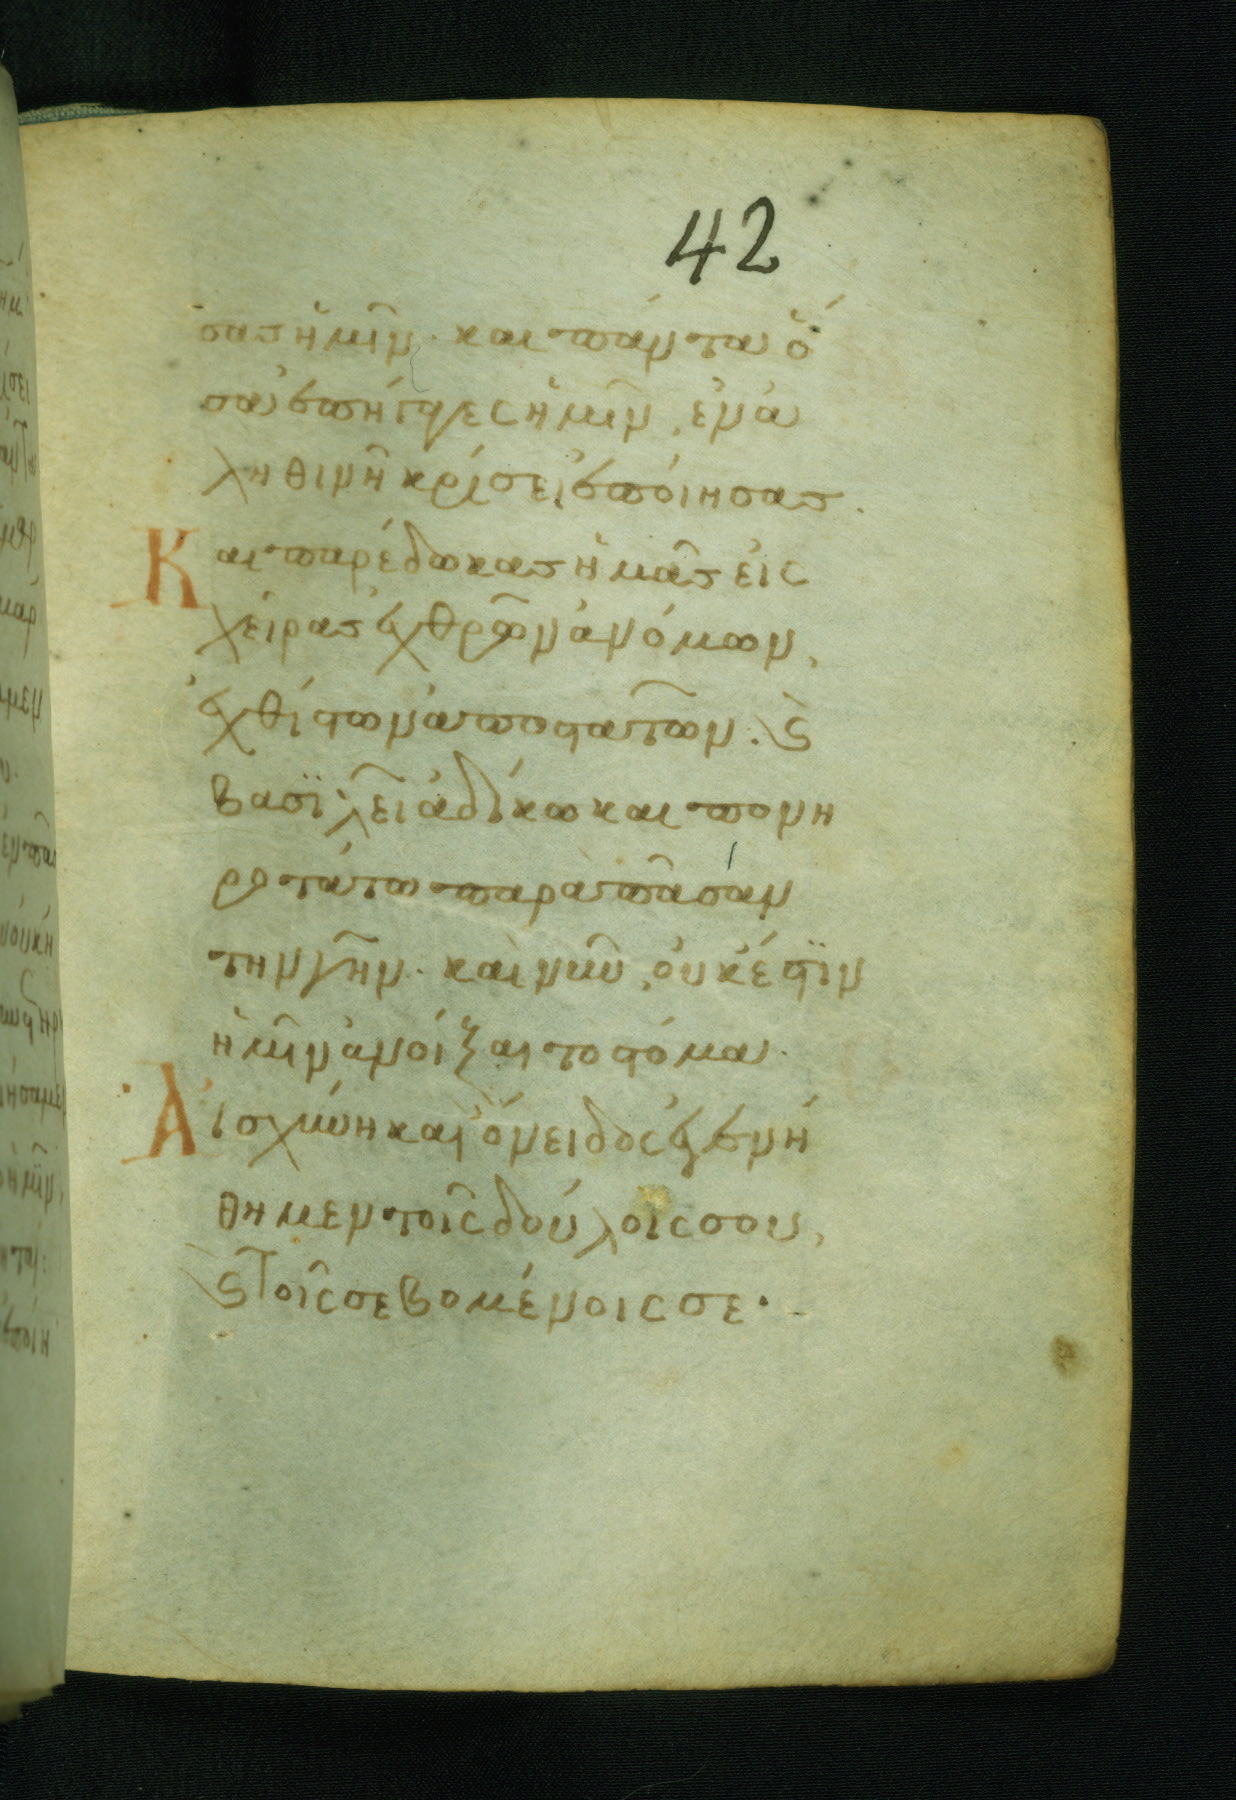 42
σασ ἡμῖν· και πάντα ὅ
σα ἐποίησες ἡμῖν, ἐν ἀ
ληθινῆ κρίσει ἐποίησασ.
Και παρέδωκασ ἡμᾶσ εἰς
χεῖρασ ἐχθρῶν ἀνόμων,
ἐχθίστων ἀποστατῶν. ϛ
βασϊλεῖ ἀδίκω και πονη
ροτάτω παρὰ πᾶσαν
την γῆν. καὶ νῦν, οὐκ έστϊν
ἡμῖν ἀνοῖξαι το στόμα.
Αἰσχύνη καὶ ὄνειδος ἐγενή
θημεν τοῖς δούλοις σου,
ϛ τοῖς σεβομένοις σε·